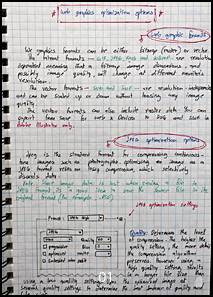 Web graphics optimization options
Web graphic formats
Web graphics formats can be either bitmap (raster) or vector
The bitmap formats - GIF, JPEG, PNG and WBMP - are resolution
dependent, meaning that a bitmap image dimensions and
possibly image quality, will change at different monitor
resolutions.
The vector formats - SVG and SWF - are resolution independent
and can be scaled up or down without losing any image
quality.
The vector formats can also include raster data. You can
export from Save for Web & Devices to SVG and SWF in
Adobe Illustrator only.
JPEG optimization options
Jpeg is the standard format for compressing continuous-
tone images such as photographs. Optimizing an image as a
JPEG format relies on lossy compression, which selectively
discards data.
JPEG optimization settings
Preset: JPEG High
JPEG
High
Quality: 60
Progressive
Blur: 0
Optimized
Matte:
Embed color profile
Quality: Determines the level
of compression. The higher the
Quality setting, the more detail
the compression algorithm
preserves. However, using a
high Quality setting results
in a larger file size than
using a low Quality setting. View the optimized image at
several quality settings to determine the best balance of quality and
01